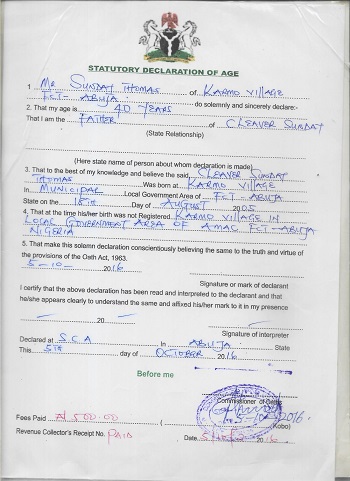 STATUTORY DECLARATION OF AGE
1. Mr SUNDAY THOMAS of KARMO VILLAGE
FCT-ABUJA do solemnly and sincerely declare:-
2. That my age is 40 YEARS
That I am the FATHER of CLEAVER SUNDAY
(State Relationship)
(Here state name of person about whom declaration is made)
3. That to the best of my knowledge and believe the said, CLEAVER SUNDAY
THOMAS Was born at KARMO VILLAGE
In MUNICIPAL Local Government Area of FCT-ABUJA
State on the 18th Day of AUGUST 2005
4. That at the time his/her birth was not Registered. KARMO VILLAGE IN
LOCAL GOVERNMENT AREA OF AMAC FCT-ABUJA
NIGERIA
5. That make this solemn declaration conscientiously believing the same to the truth and virtue of
the provisions of the Oath Act, 1963.
5-10- 2016
Signature or mark of declarant
I certify that the above declaration has been read and interpreted to the declarant and that
he/she appears clearly to understand the same and affixed his/her mark to it in my presence
20
Signature of interpreter
Declared at S.C.A In ABUJA State
This 5th day of OCTOBER 2016
Before me
Commissioner of Oaths
Fees Paid ₦500.00 ( Kobo)
Revenue Collector's Receipt No. PAID Date 2016